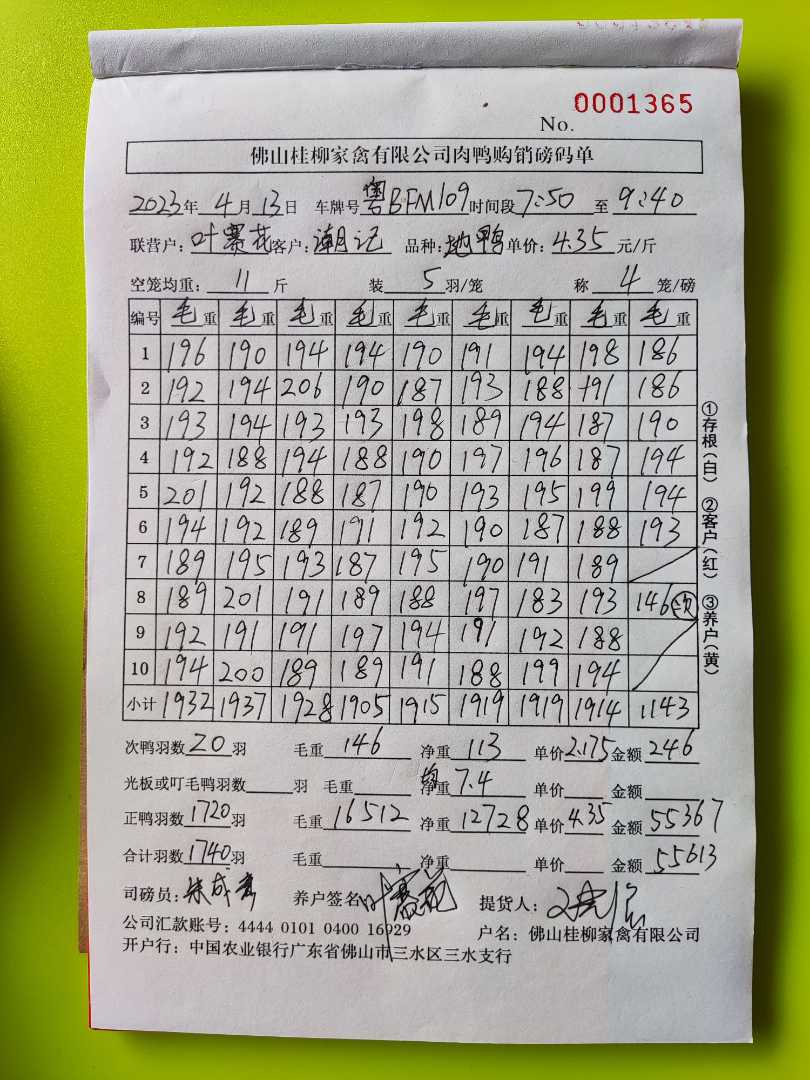 No. 0001365
佛山桂柳家禽有限公司肉鸭购销磅码单
2023年 4月 13日 车牌号 粤BFM109 时间段 7:50 至 9:40
联营户:叶赛花 客户:潮记 品种:地鸭 单价:4.35 元/斤
空笼均重: 11 斤 装 5 羽/笼 称 4 笼/磅
编号 毛重 毛重 毛重 毛重 毛重 毛重 毛重 毛重 毛重
1 196 190 194 194 190 191 194 198 186
2 192 194 206 190 187 193 188 191 186
3 193 194 193 193 198 189 194 187 190
4 192 188 194 188 190 197 196 187 194
5 201 192 188 187 190 193 195 199 194
6 194 192 189 191 192 190 187 188 193
7 189 195 193 187 195 190 191 189
8 189 201 191 189 188 197 183 193 146 次
9 192 191 191 197 194 191 192 188
10 194 200 189 189 191 188 199 194
小计 1932 1937 1928 1905 1915 1919 1919 1914 1143
次鸭羽数 20 羽 毛重 146 净重 113 单价 2.175 金额 246
光板或叮毛鸭羽数 羽 毛重 净重 均 7.4 单价 金额
正鸭羽数 1720 羽 毛重 16512 净重 12728 单价 4.35 金额 55367
合计羽数 1740 羽 毛重 净重 单价 金额 55613
司磅员: 养户签名 叶赛花 提货人:
公司汇款账号:4444 0101 0400 16929 户名:佛山桂柳家禽有限公司
开户行:中国农业银行广东省佛山市三水区三水支行
①存根(白) ②客户(红) ③养户(黄)